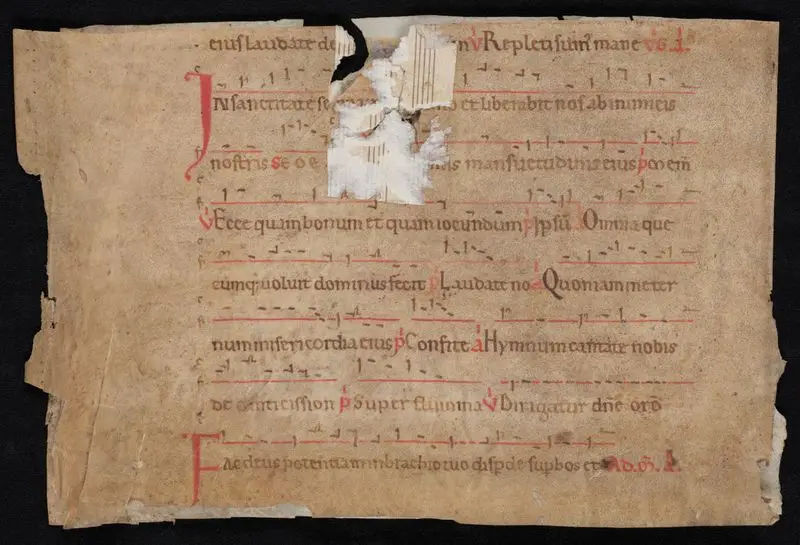 eius laudate de n V Repleti sumˀ mane
IN sanctitate se et liberabit nos ab inimicis
nostris S e o e mansuetudinis eius p̄
V Ecce quam bonum et quam iocundum p̄ Ipsū Omnia que
cumq; uoluit dominus fecit p̄ Laudate no a Quoniam in eter
num misericordia eius p̄ Confite a Hymnum cantate nobis
de canticis sion p̄ Super flumina V Dirigatur dn̄e orō
Fac deus potentiam in brachio tuo et Ad